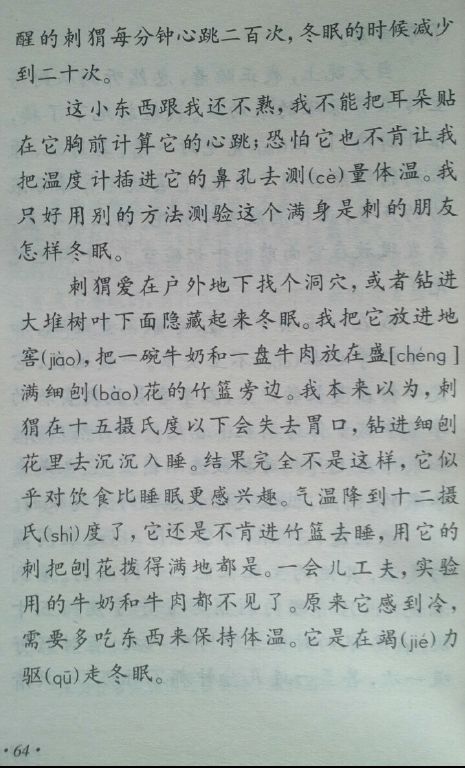 醒的刺猬每分钟心跳二百次，冬眠的时候减少
到二十次。
这小东西跟我还不熟，我不能把耳朵贴
在它胸前计算它的心跳；恐怕它也不肯让我
把温度计插进它的鼻孔去测(cè)量体温。我
只好用别的方法测验这个满身是刺的朋友
怎样冬眠。
刺猬爱在户外地下找个洞穴，或者钻进
大堆树叶下面隐藏起来冬眠。我把它放进地
窖(jiào)，把一碗牛奶和一盘牛肉放在盛[chéng]
满细刨(bào)花的竹篮旁边。我本来以为，刺
猬在十五摄氏度以下会失去胃口，钻进细刨
花里去沉沉入睡。结果完全不是这样，它似
乎对饮食比睡眠更感兴趣。气温降到十二摄
氏(shì)度了，它还是不肯进竹篮去睡，用它的
刺把刨花拨得满地都是。一会儿工夫，实验
用的牛奶和牛肉都不见了。原来它感到冷，
需要多吃东西来保持体温。它是在竭(jié)力
驱(qū)走冬眠。
·64·